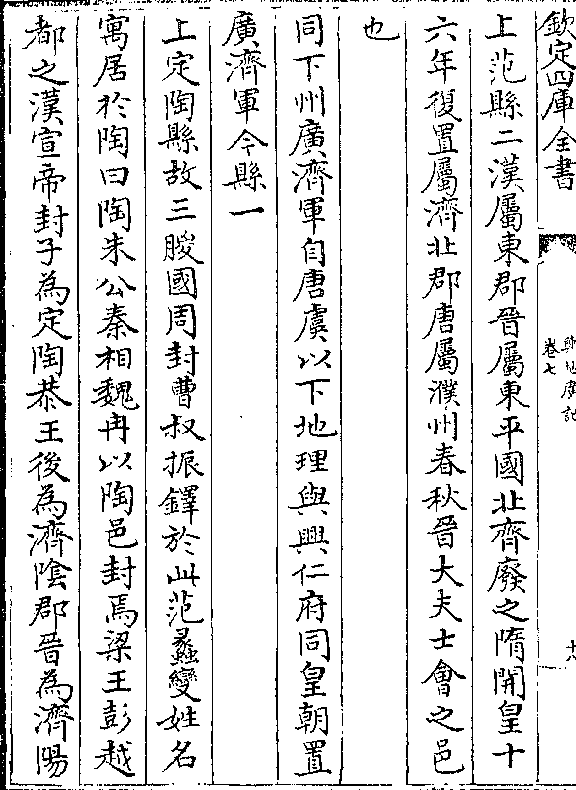 欽定四庫全書
輿地廣記
卷七
十八
上范縣二漢屬東郡晉屬東平國北齊廢之隋開皇十
六年復置屬濟北郡唐屬濮州春秋晉大夫士會之邑
也
同下州廣濟軍自唐虞以下地理與興仁府同皇朝置
廣濟軍今縣一
上定陶縣故三朡國周封曹叔振鐸於此范蠡變姓名
寓居於陶曰陶朱公秦相魏冉以陶邑封焉梁王彭越
都之漢宣帝封子為定陶恭王後為濟陰郡晉為濟陽